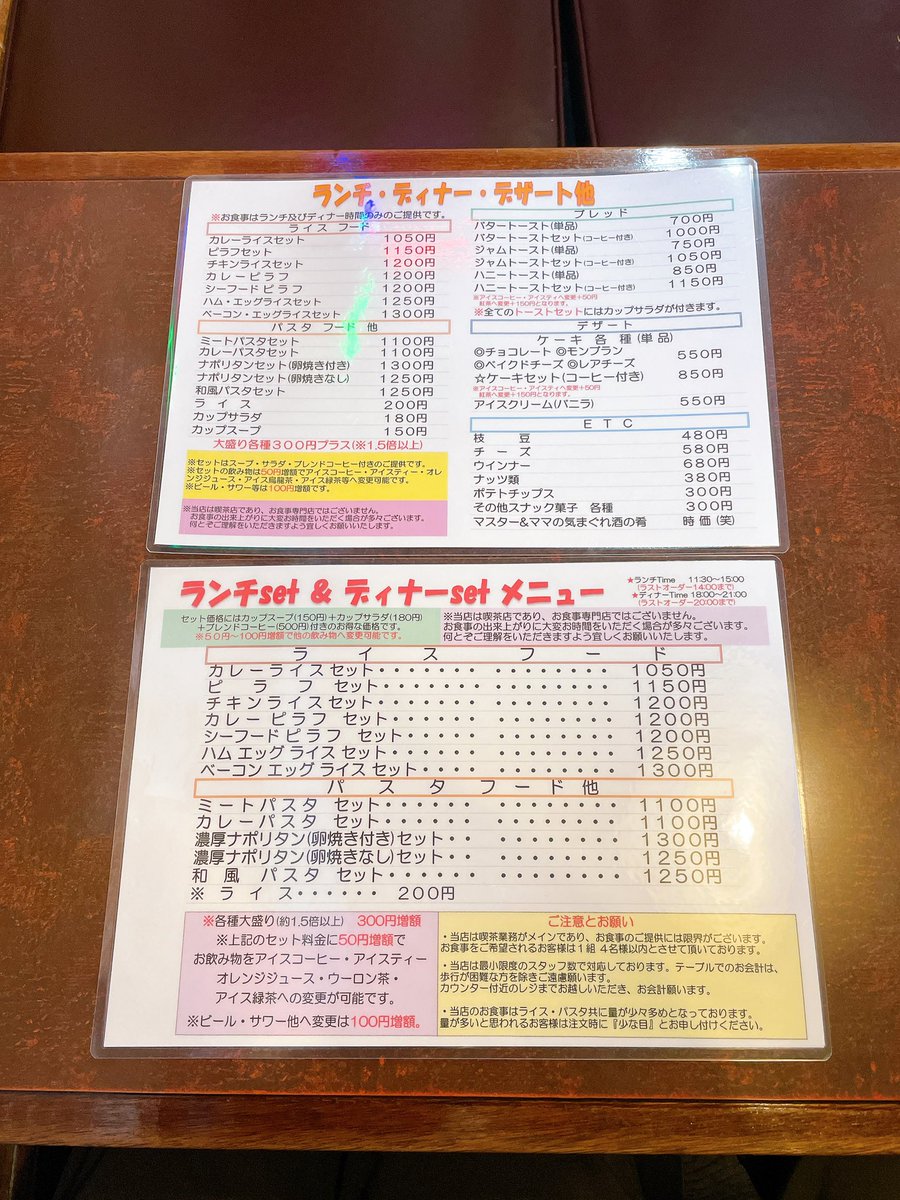 ランチ・ディナー・デザート他
※お食事はランチ及びディナー時間のみのご提供です。
ライス フード
カレーライスセット 1050円
ピラフセット 1150円
チキンライスセット 1200円
カレーピラフ 1200円
シーフードピラフ 1200円
ハム・エッグライスセット 1250円
ベーコン・エッグライスセット 1300円
パスタ フード 他
ミートパスタセット 1100円
カレーパスタセット 1100円
ナポリタンセット(卵焼き付き) 1300円
ナポリタンセット(卵焼きなし) 1250円
和風パスタセット 1250円
ライス 200円
カップサラダ 180円
カップスープ 150円
大盛り各種300円プラス(※1.5倍以上)
※セットはスープ・サラダ・ブレンドコーヒー付きのご提供です。
※セットの飲み物は50円増額でアイスコーヒー・アイスティー・オレ
ンジジュース・アイス烏龍茶・アイス緑茶等へ変更可能です。
※ビール・サワー等は100円増額です。
※当店は喫茶店であり、お食事専門店ではございません。
お食事の出来上がりに大変お時間をいただく場合が多々ございます。
何とぞご理解をいただきますよう宜しくお願いいたします。
ブレッド
バタートースト(単品) 700円
バタートーストセット(コーヒー付き) 1000円
ジャムトースト(単品) 750円
ジャムトーストセット(コーヒー付き) 1050円
ハニートースト(単品) 850円
ハニートーストセット(コーヒー付き) 1150円
※アイスコーヒー・アイスティへ変更+50円
紅茶へ変更+150円となります。
※全てのトーストセットにはカップサラダが付きます。
デザート
ケーキ 各種(単品)
◎チョコレート ◎モンブラン 550円
◎ベイクドチーズ ◎レアチーズ
☆ケーキセット(コーヒー付き) 850円
※アイスコーヒー・アイスティへ変更+50円
紅茶へ変更+150円となります。
アイスクリーム(バニラ) 550円
ETC
枝豆 480円
チーズ 580円
ウインナー 680円
ナッツ類 380円
ポテトチップス 300円
その他スナック菓子 各種 300円
マスター&ママの気まぐれ酒の肴 時価(笑)
ランチset & ディナーset メニュー
★ランチTime 11:30～15:00
(ラストオーダー14:00まで)
★ディナーTime 18:00～21:00
(ラストオーダー20:00まで)
セット価格にはカップスープ(150円)+カップサラダ(180円)
+ブレンドコーヒー(500円)付きのお得な価格です。
※50円～100円増額で他の飲み物へ変更可能です。
※当店は喫茶店であり、お食事専門店ではございません。
お食事の出来上がりに大変お時間をいただく場合が多々ございます。
何とぞご理解をいただきますよう宜しくお願いいたします。
ライス フード
カレーライスセット・・・・・・ ・・・・・・・・ 1050円
ピラフ セット・・・・・・ ・・・・・・・・ 1150円
チキンライスセット・・・・・・ ・・・・・・・・ 1200円
カレーピラフ セット・・・・・・ ・・・・・・・・ 1200円
シーフードピラフ セット・・・・・ ・・・・・・・・ 1200円
ハムエッグライスセット・・・・・・ ・・・・・・・・ 1250円
ベーコンエッグライスセット・・・・ ・・・・・・・・ 1300円
パスタフード他
ミートパスタ セット・・・・・・ ・・・・・・・・ 1100円
カレーパスタ セット・・・・・・ ・・・・・・・・ 1100円
濃厚ナポリタン(卵焼き付き)セット・・ ・・・・・・・・ 1300円
濃厚ナポリタン(卵焼きなし)セット・・ ・・・・・・・・ 1250円
和風 パスタ セット・・・・・・ ・・・・・・・・ 1250円
※ライス・・・・・・ 200円
※各種大盛り(約1.5倍以上) 300円増額
※上記のセット料金に50円増額で
お飲み物をアイスコーヒー・アイスティー
オレンジジュース・ウーロン茶・
アイス緑茶への変更が可能です。
※ビール・サワー他へ変更は100円増額。
ご注意とお願い
・当店は喫茶業務がメインであり、お食事のご提供には限界がございます。
お食事をご希望されるお客様は1組 4名様以内とさせて頂いております。
・当店は最小限度のスタッフ数で対応しております。テーブルでのお会計は、
歩行が困難な方を除きご遠慮願います。
カウンター付近のレジまでお越しいただき、お会計願います。
・当店のお食事はライス・パスタ共に量が少々多めとなっております。
量が多いと思われるお客様は注文時に『少な目』とお申し付けください。